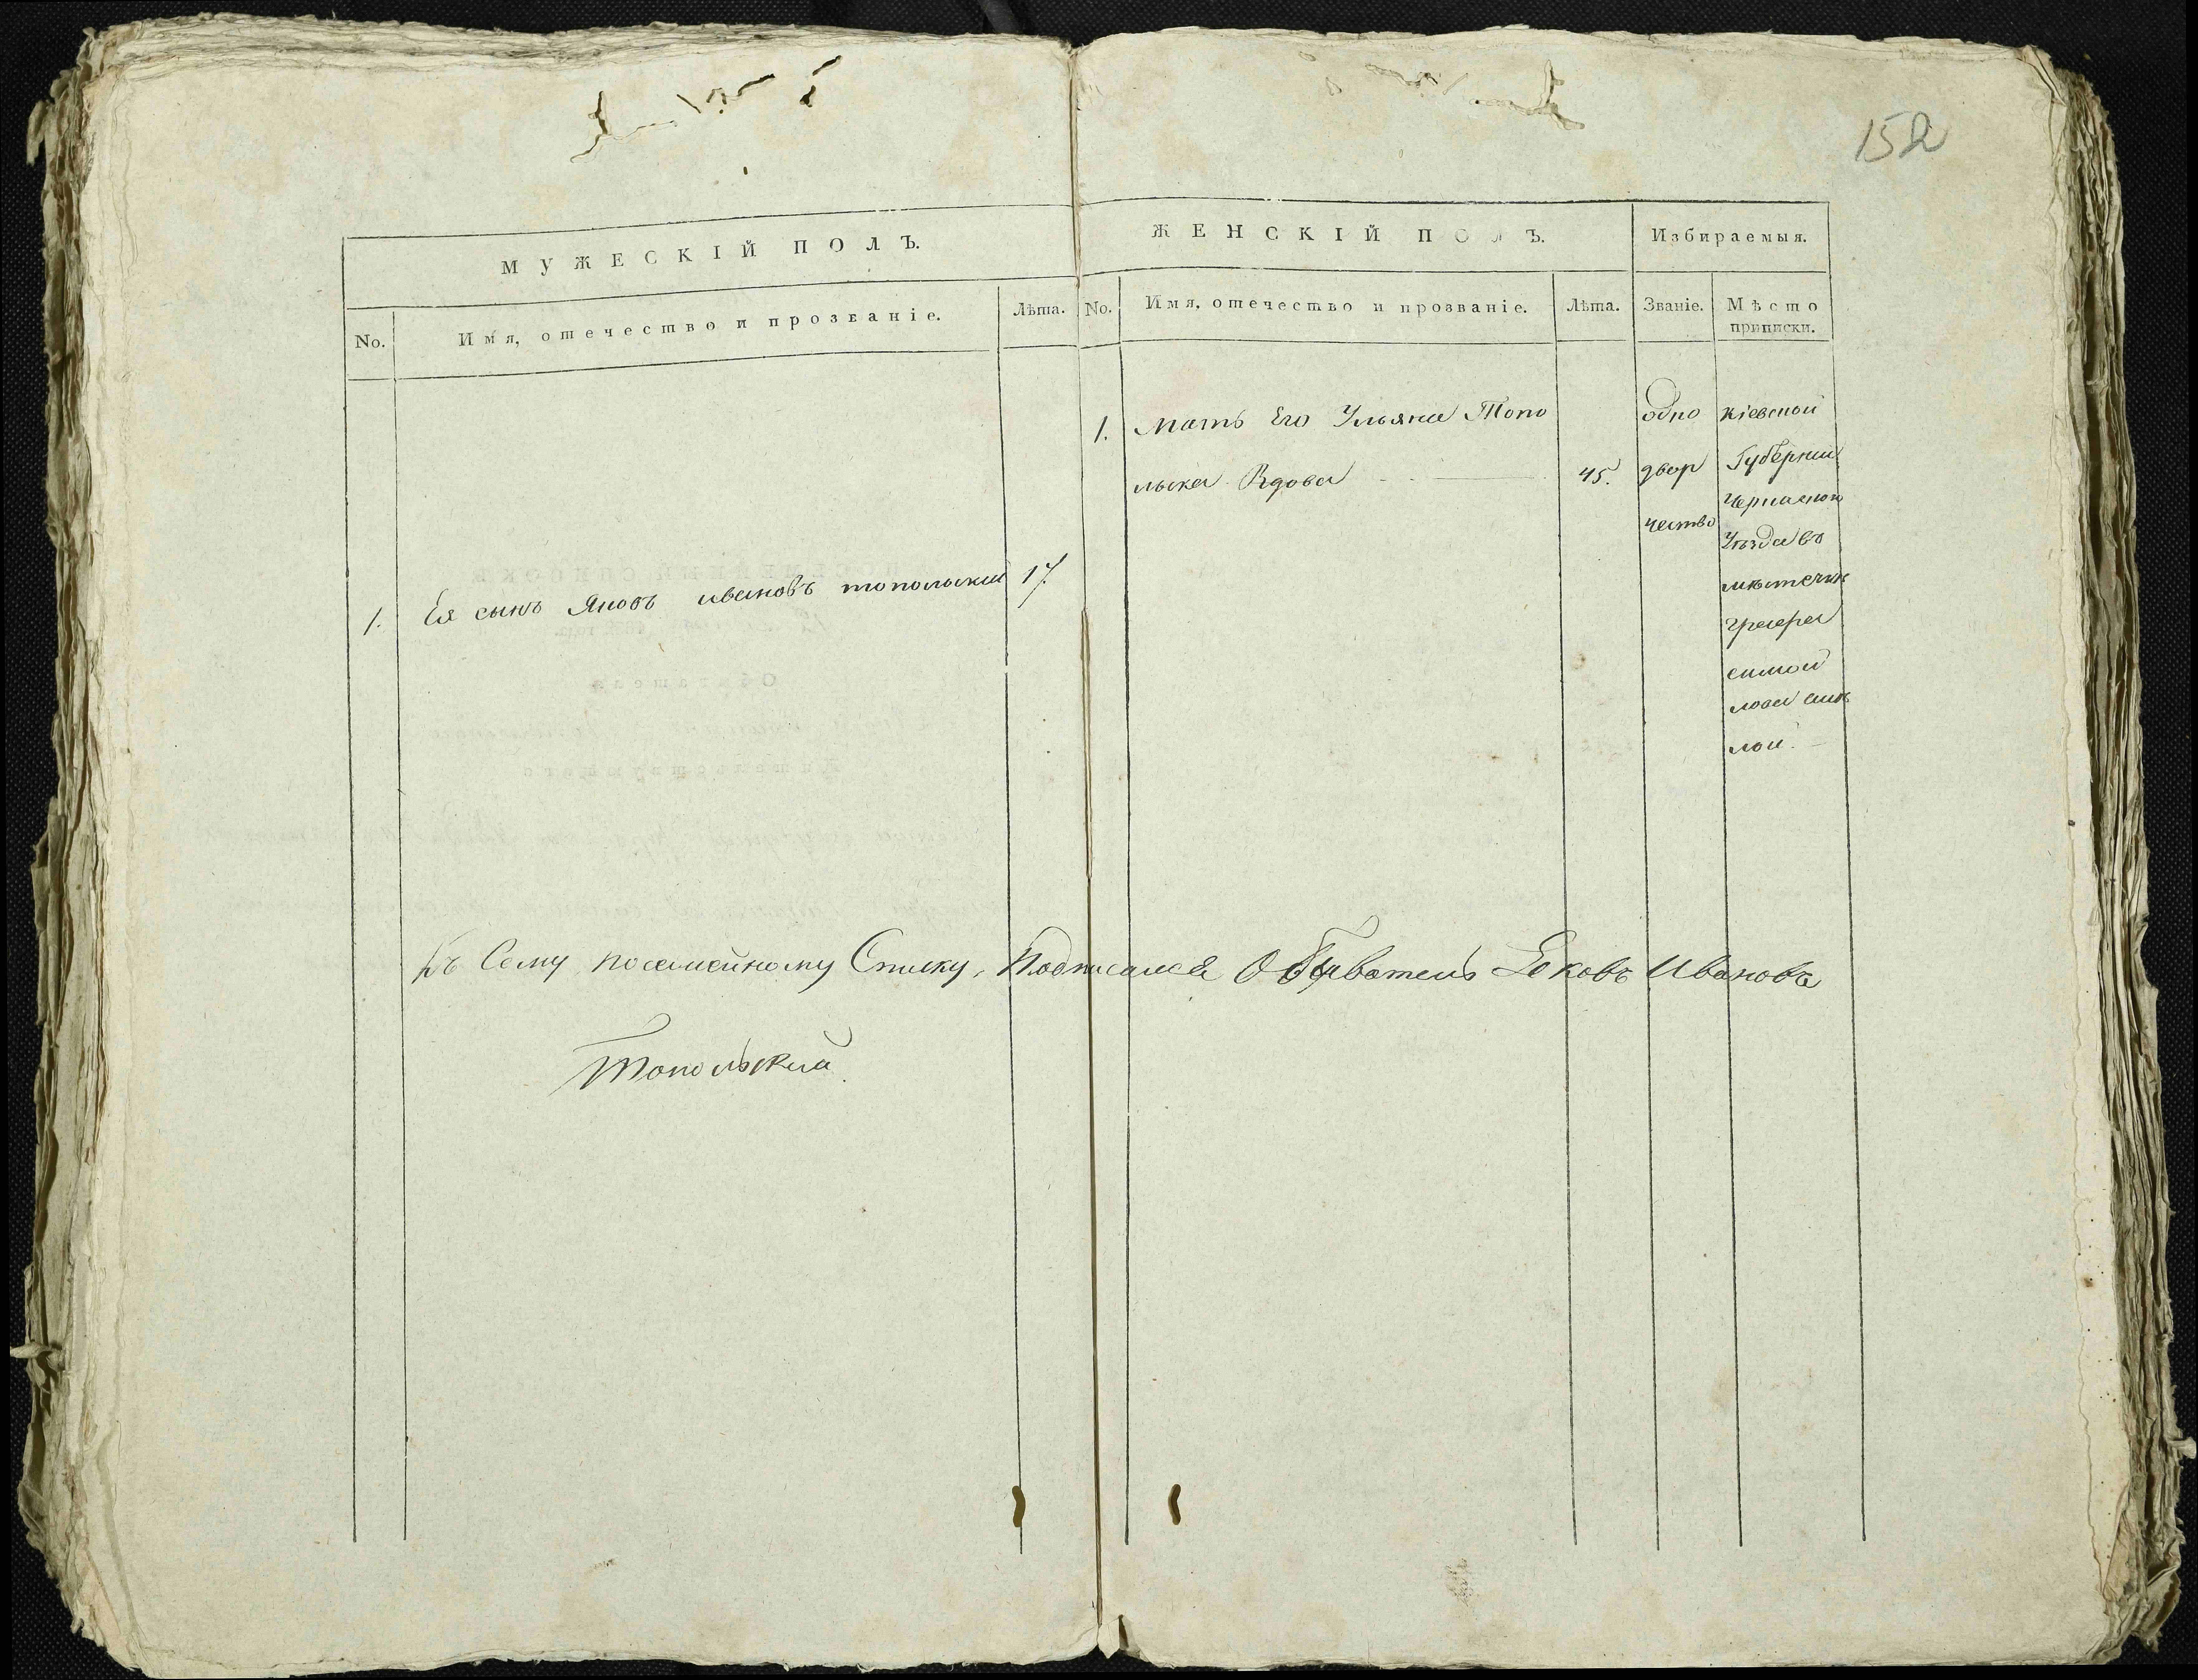 152
МУЖЕСКІЙ ПОЛЪ.
No.
Имя, отечество и прозваніе.
Лѣта.
1.
Ея сынъ Яковъ ивановъ топольский
17.
ЖЕНСКІЙ ПОЛЪ.
Избираемыя.
No.
Имя, отечество и прозваніе.
Лѣта.
Званіе.
Мѣсто
приписки.
1.
Мать Его Ульяна Топо
льска Вдова
45.
одно
двор
чество
Кіевской
Губерніи
Черкаской
Уѣзда въ
мѣстечкѣ
Къ Сему посемейному Списку, Подписался Обыватель Ековъ Ивановъ
Топольский